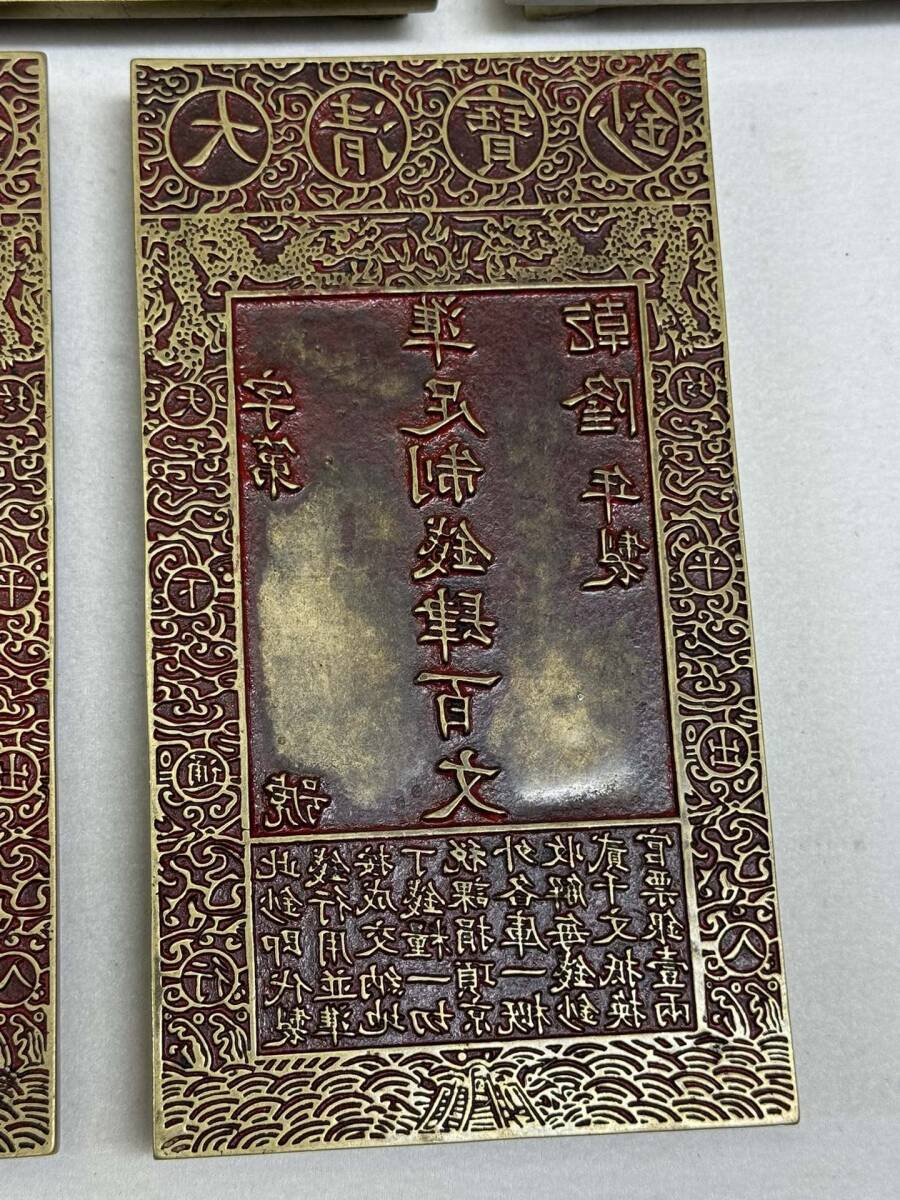 大清寶鈔
天下通行
字第
號
準足制錢肆百文
乾隆年製
均平出入
此鈔即代製
錢行用並準
按成交納地
丁錢糧一切
稅課捐項京
外各庫一概
收解每錢鈔
貳千文抵換
官票銀壹兩